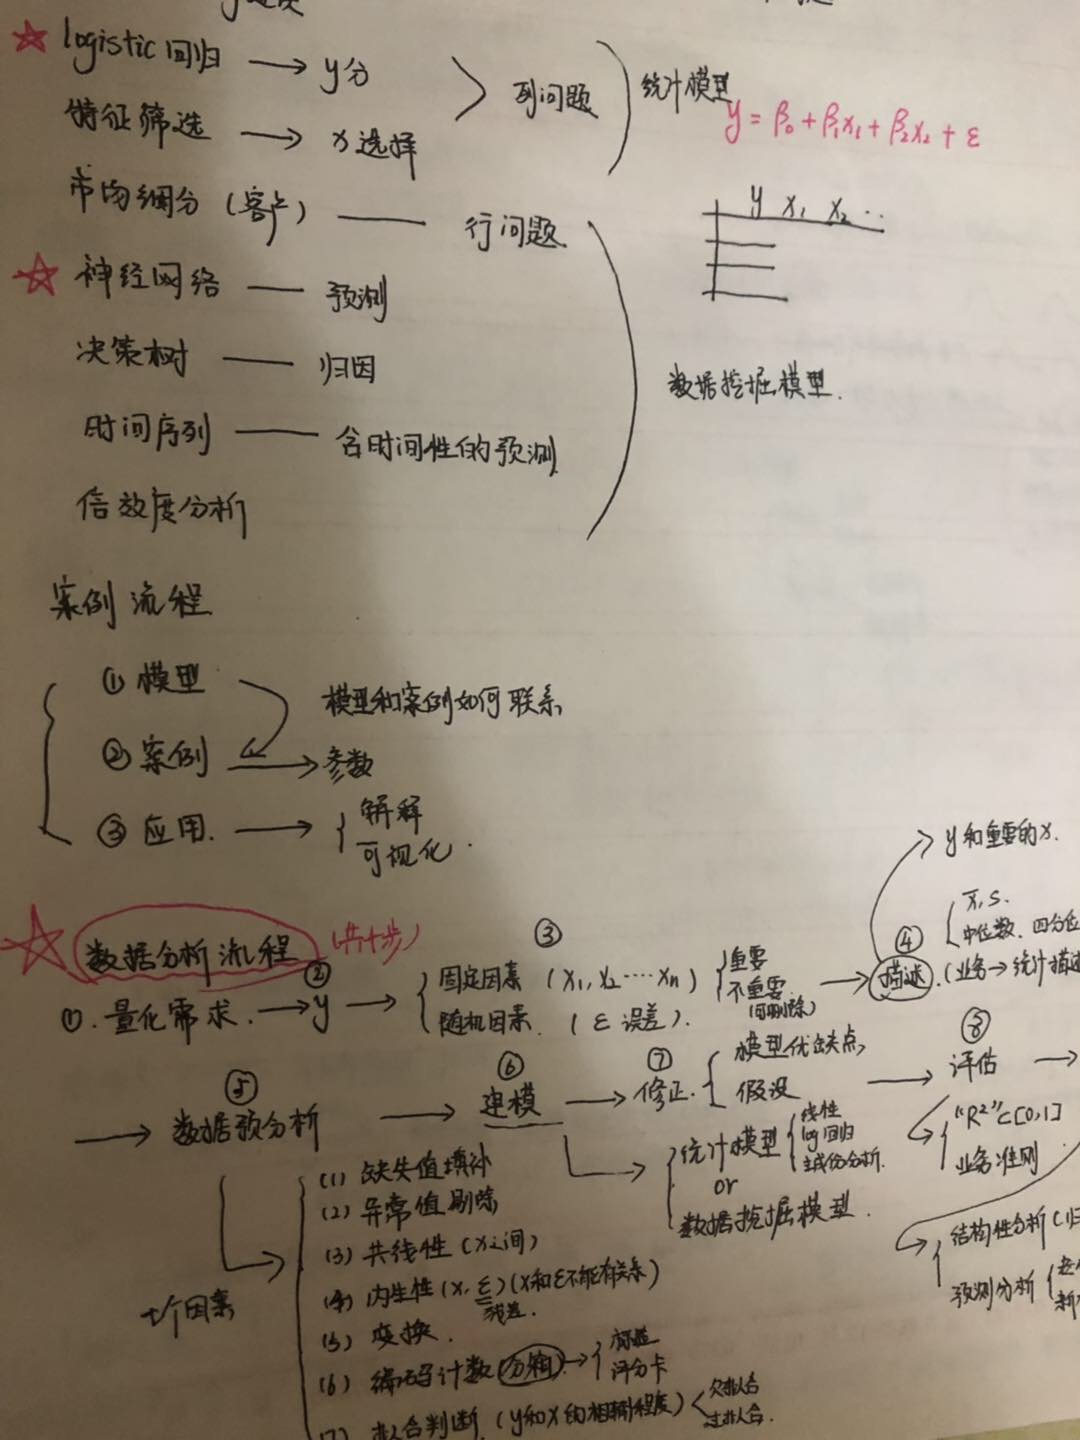 logistic回归 → y分
列问题
统计模型
y = β₀ + β₁x₁ + β₂x₂ + ε
特征筛选 → x选择
市场细分（客户） — 行问题
y x₁ x₂ ··
神经网络 — 预测
决策树 — 归因
数据挖掘模型.
时间序列 — 含时间性的预测
信效度分析
案例流程
① 模型
模型和案例如何联系
② 案例 → 参数
③ 应用. → { 解释
可视化.
y和重要的x.
数据分析流程 (共十步)
x̄, s.
中位数、四分位
① 量化需求. → ② y → ③ { 固定因素 (x₁, x₂ ···· xₙ) { 重要
不重要 (可删除)
随机因素. ( ε 误差).
→ ④ 描述. (业务→统计描述
→ ⑤ 数据预分析 → ⑥ 建模 → ⑦ 修正. { 模型优缺点
假设
→ ⑧ 评估 →
"R²"⊂[0,1]
业务准则
统计模型 { 线性
log回归
主成份分析.
or
数据挖掘模型.
(1) 缺失值填补
(2) 异常值剔除
(3) 共线性 (x之间)
(4) 内生性 (x, ε) (x和ε不能有关系)
残差.
(5) 变换.
(6) 编码计数 (分箱) → {
评分卡
(7) 拟合判断 (y和x的相关程度) < 欠拟合
过拟合.
结构性分析 (归
预测分析 {